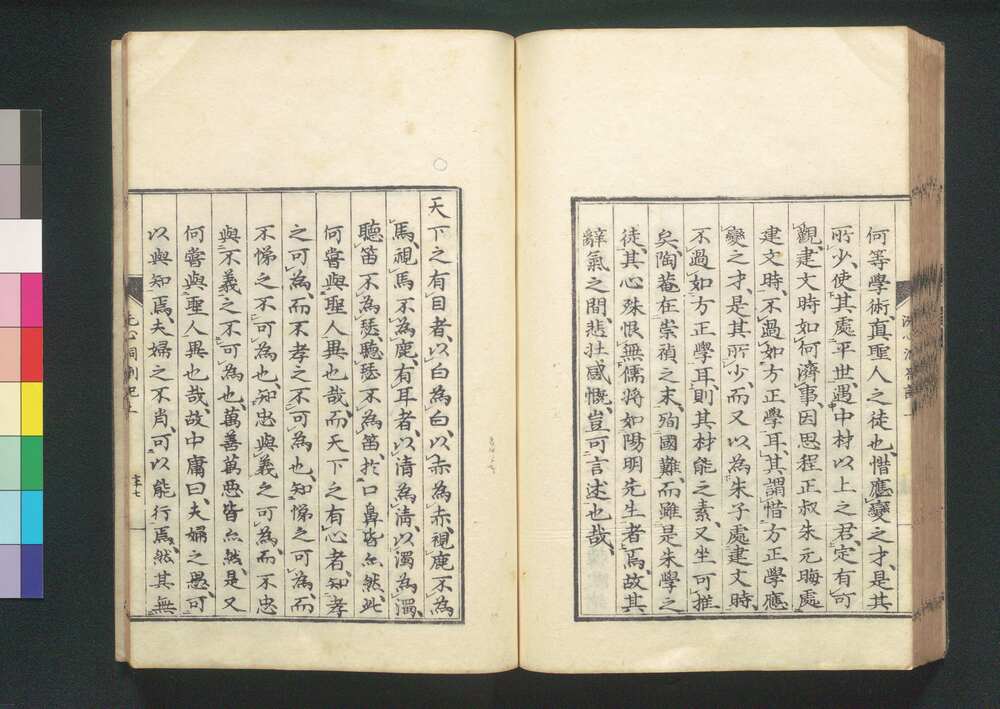 何等學術、真聖人之徒也、惜應變之才、是其
所少、使其處平世、遇中材以上之君、定有可
觀、建文時如何濟事、因思程正叔朱元晦處
建文時、不過如方正學耳、其謂惜方正學應
變之才、是其所少、而又以為朱子處建文時、
不過如方正學耳、則其材能之素、又坐可推
矣、陶菴在崇禎之末、殉國難、而雖是朱學之
徒、其心殊恨無儒將如陽明先生者焉、故其
辭氣之間、悲壯感慨、豈可言述也哉、
天下之有目者、以白為白、以赤為赤、視鹿不為
馬、視馬不為鹿、有耳者、以清為清、以濁為濁、
聽笛不為瑟、聽瑟不為笛、於口鼻皆亦然、此
何嘗與聖人異也哉、而天下之有心者、知孝
之可為、而不孝之不可為也、知悌之可為、而
不悌之不可為也、知忠與義之可為、而不忠
與不義之不可為也、萬善萬惡皆亦然、是又
何嘗與聖人異也哉、故中庸曰、夫婦之愚、可
以與知焉、夫婦之不肖、可以能行焉、然其無
洗心洞劄記上